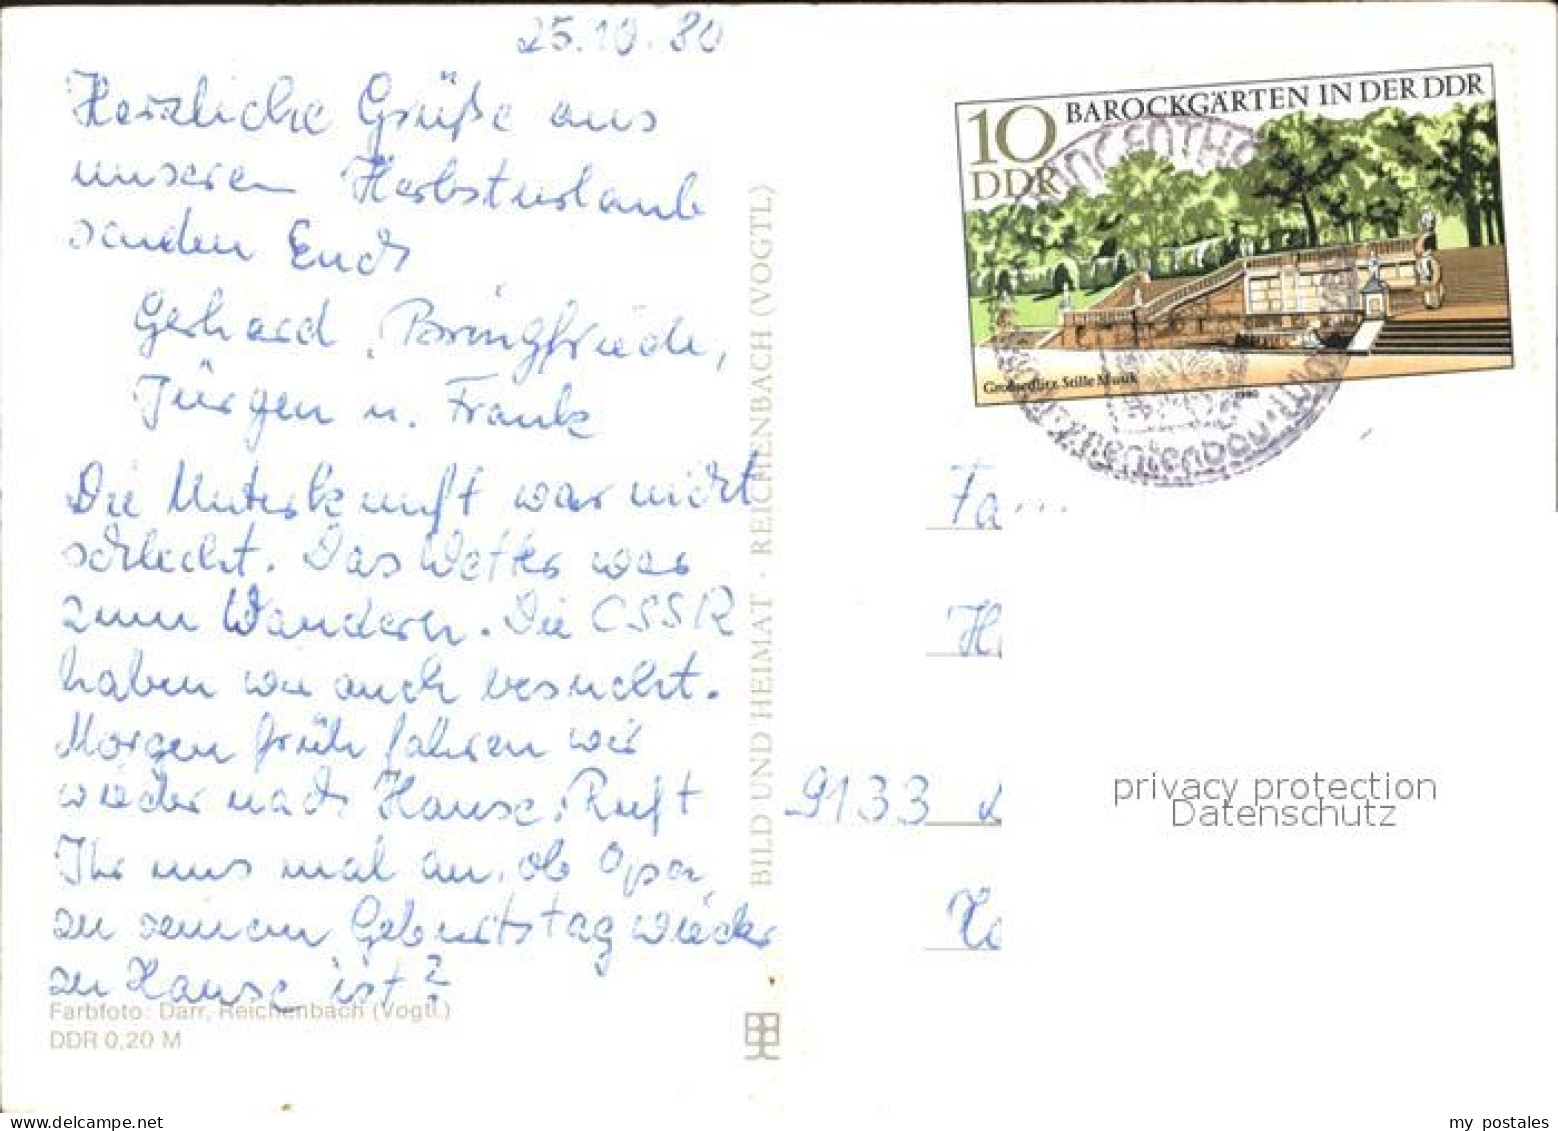 25.10.80
Herzliche Grüße aus
unseren Herbsturlaub
senden Euch
Gerhard, Bringfriede,
Jürgen u. Frank
Die Unterkunft war nicht
schlecht. Das Wetter war
zum Wandern. Die CSSR
haben wir auch besucht.
Morgen früh fahren wir
wieder nach Hause. Ruft
Ihr uns mal an, ob Opa,
zu seinem Geburtstag wieder
zu Hause ist?
Farbfoto: Darr, Reichenbach (Vogtl.)
DDR 0,20 M
BILD UND HEIMAT · REICHENBACH (VOGTL)
10 BAROCKGÄRTEN IN DER DDR
DDR
Großsedlitz, Stille Musik
1980
Fa...
H
9133
privacy protection
Datenschutz
my postales